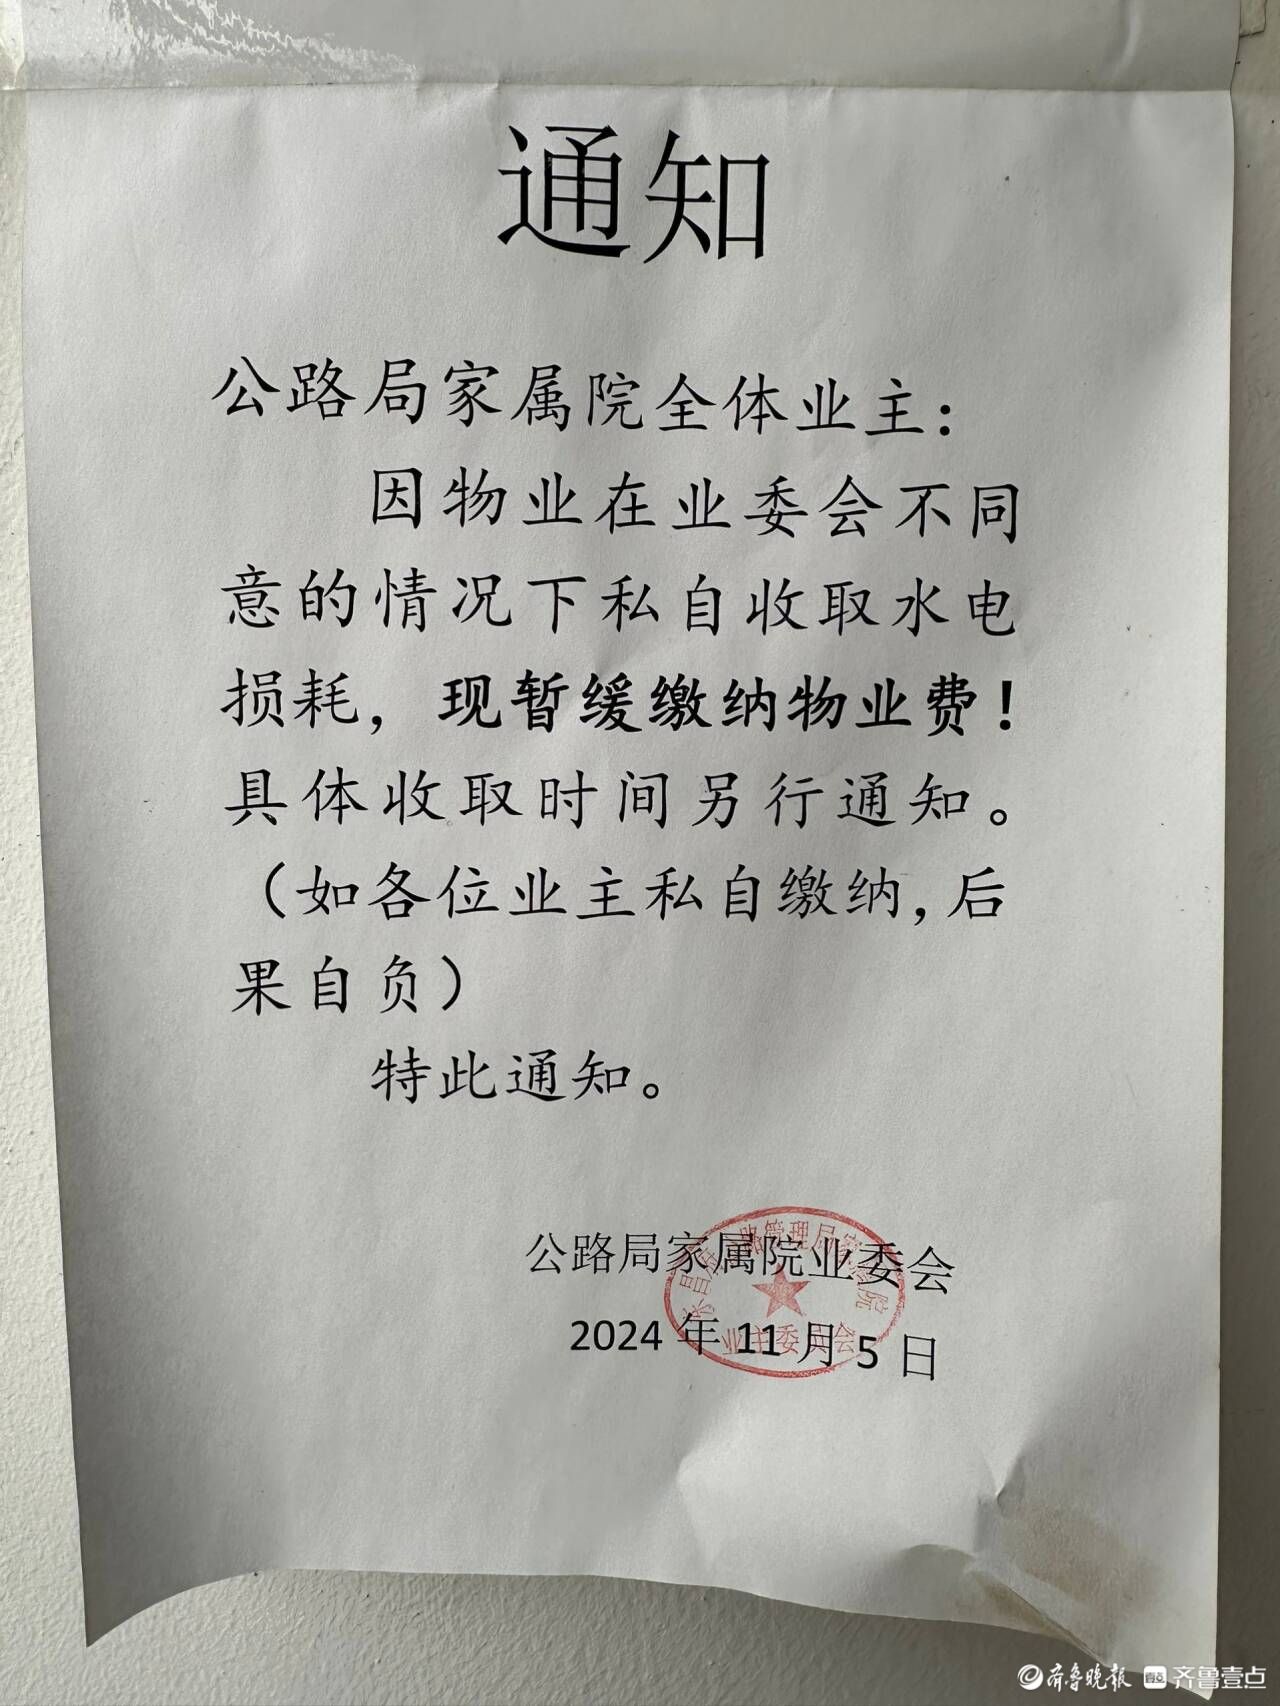 通知
公路局家属院全体业主：
因物业在业委会不同
意的情况下私自收取水电
损耗，现暂缓缴纳物业费！
具体收取时间另行通知。
（如各位业主私自缴纳，后
果自负）
特此通知。
公路局家属院业委会
2024年11月5日
业主委员会
齐鲁晚报 齐鲁壹点